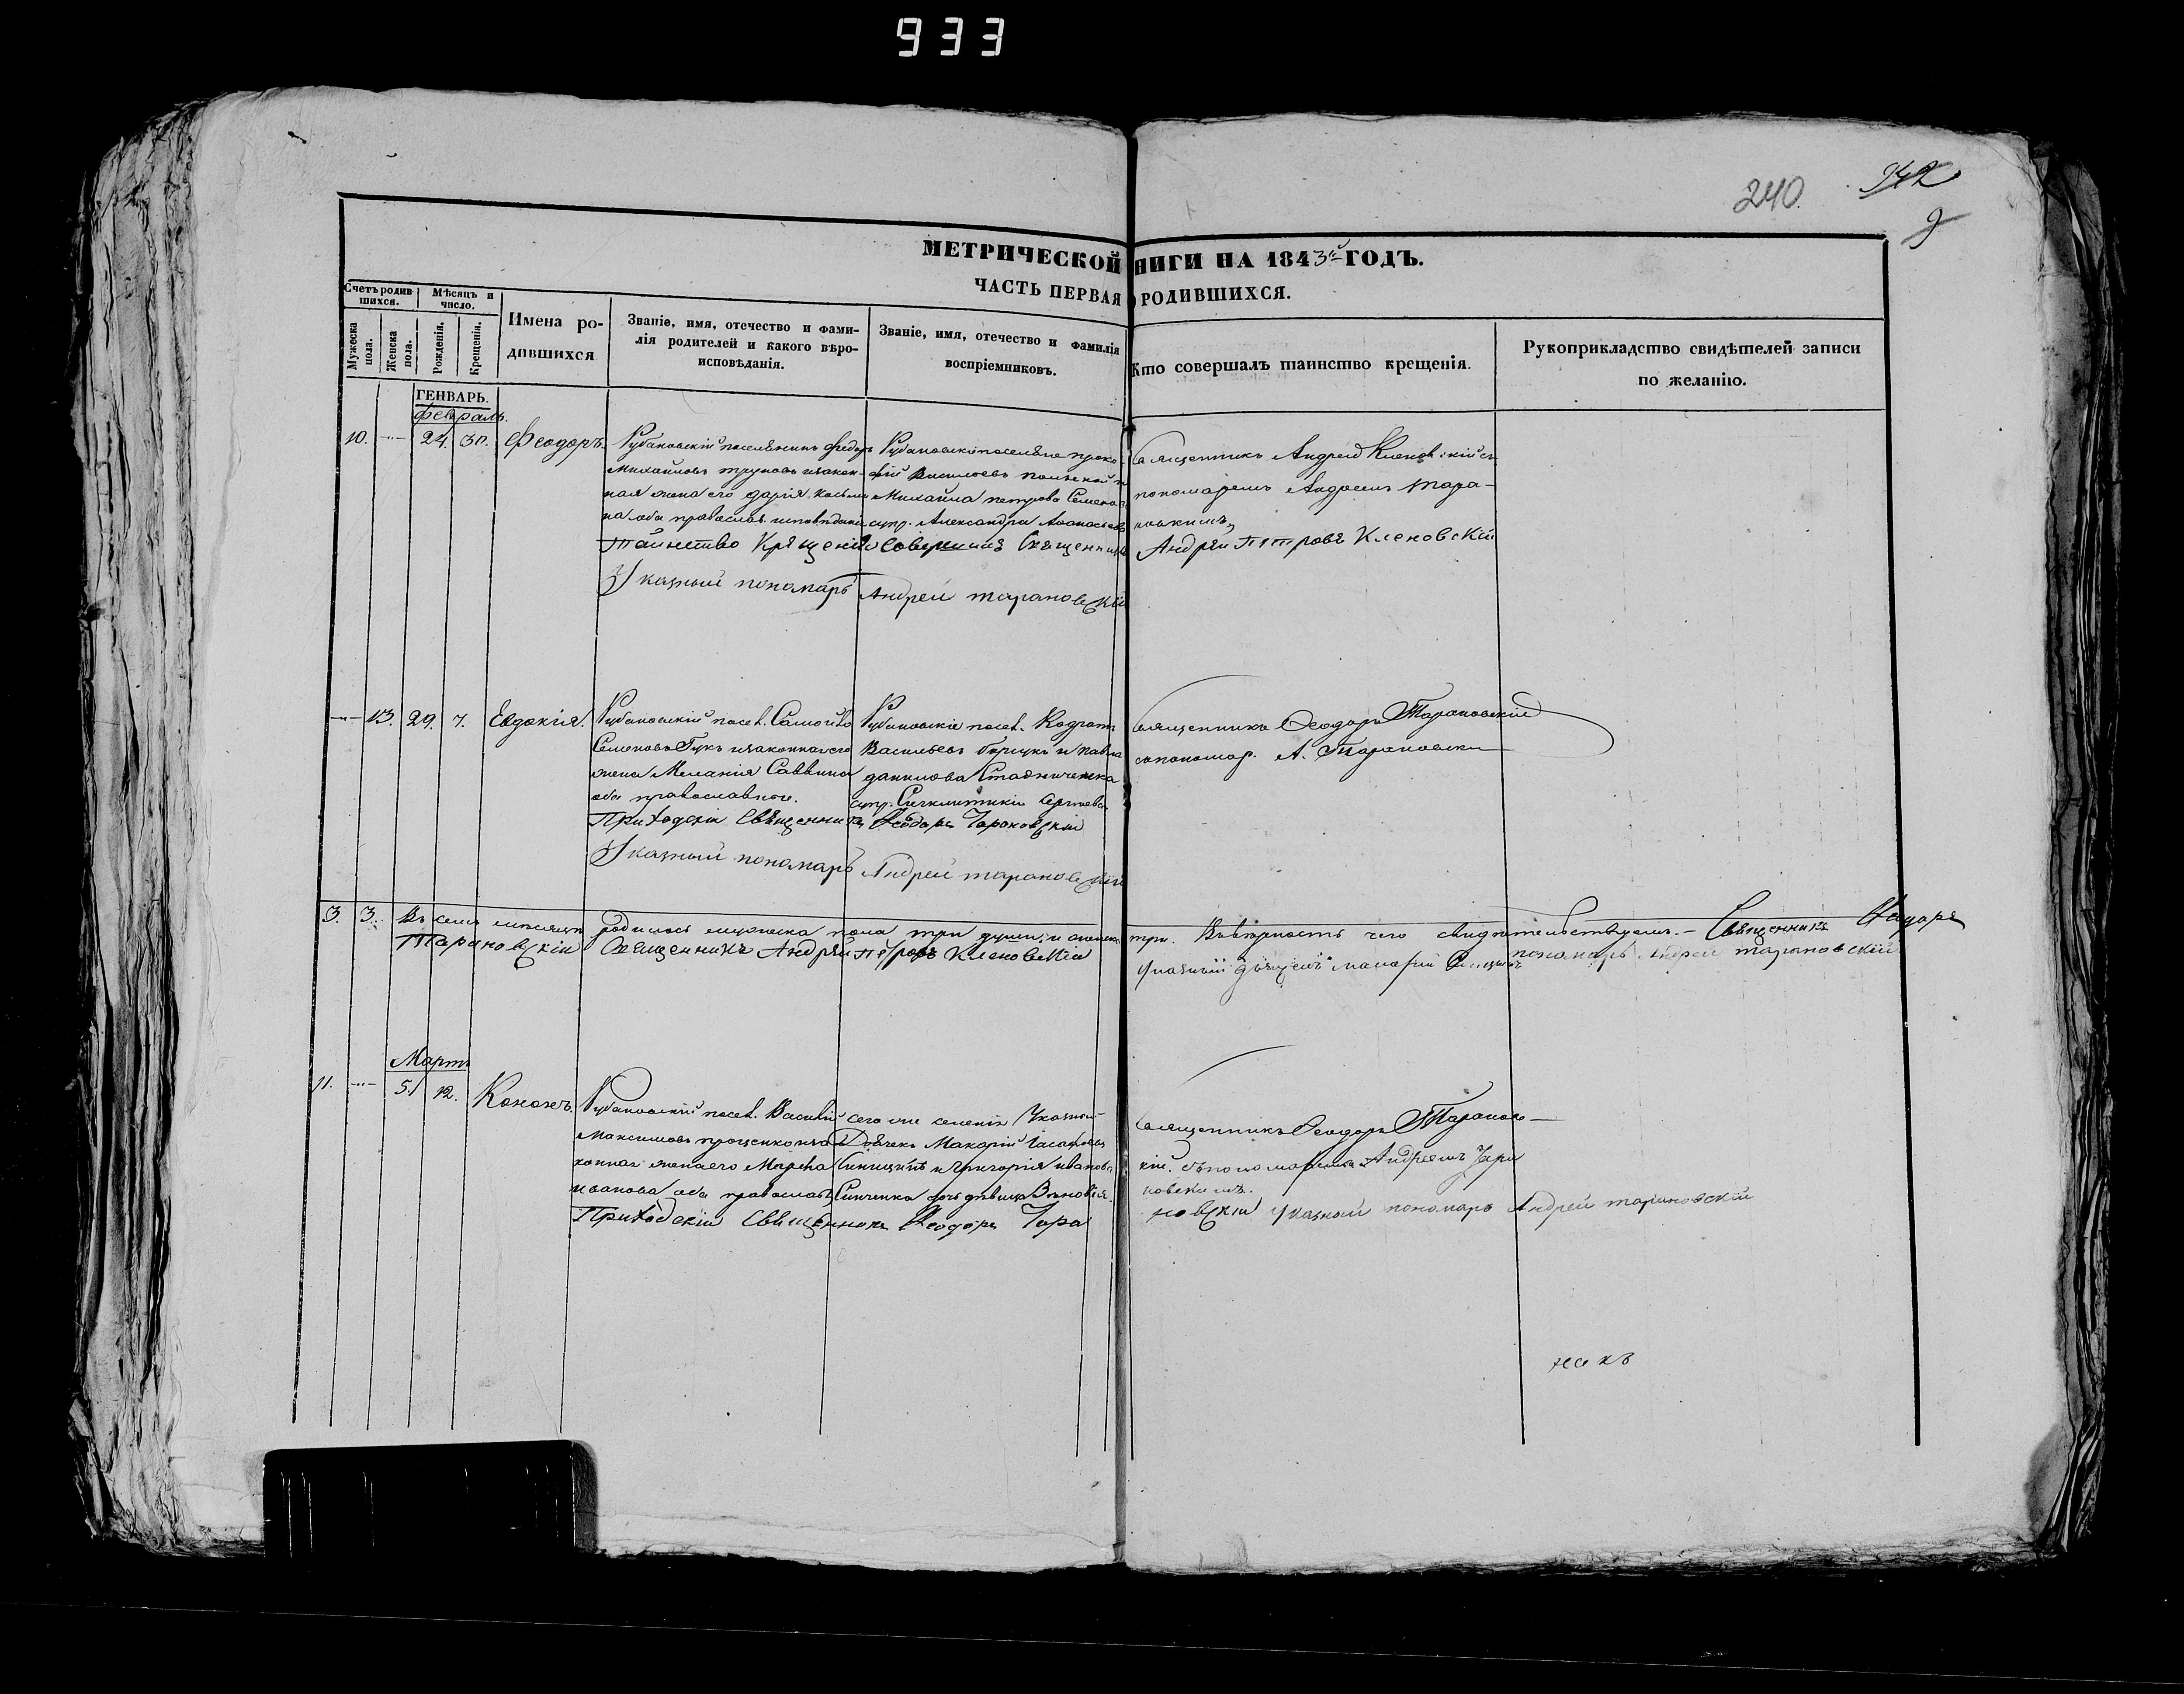 933
240.
942
9
МЕТРИЧЕСКОЙ НИГИ НА 1843й ГОДЪ.
ЧАСТЬ ПЕРВАЯ О РОДИВШИХСЯ.
Счетъ родив
шихся.
Мѣсяцъ и
число.
Мужеска
пола.
Женска
пола.
Рожденія.
Крещенія.
Имена ро-
дившихся
Званіе, имя, отечество и фами-
лія родителей и какого вѣро-
исповѣданія.
Званіе, имя, отечество и фамилія
воспріемниковъ.
Кто совершалъ таинство крещенія.
Рукоприкладство свидѣтелей записи
по желанію.
ГЕНВАРЬ.
Февраль.
10. 24. 30. Феодоръ.
Рубановскій поселянинъ Федоръ
Михайловъ Труновъ и закон-
ная жена его Дарія
на оба православ. исповѣданія
Рубановскіе поселяне Проко-
фій Васильевъ
Михайла Петрова
супр. Александра
Священникъ Андрей Кленовскій съ
пономаремъ Андреемъ Тара-
новскимъ
Таинство Крященія Совершилъ Священникъ Андрѣй Пѣтровъ Кленовскій
Указный пономарь Андрей Тарановскій
13. 29. 7. Евдокія.
Рубановскій посел. Самойло
Семеновъ Гукъ и законная его
жена Меланія Саввина
оба православные.
Рубановскіе посел. Кодратъ
Васильевъ и Павла
Данилова
супр. Сергѣева
Священникъ Феодоръ Тарановскій
со пономар. А. Тарановски
Приходскій Свѣщенникъ Феодоръ Тарановскій
Указный пономарь Андрей Тарановскій
3. 3. Въ семъ мѣсяцѣ родилось мужеска пола три души и женска три. Въ вѣрность чего свидѣтельствуемъ. - Священникъ Феодоръ
Тарановскій Священникъ Андрѣй Пѣтровъ Кленовскій Указный дьячекъ Макарій Синицынъ пономарь Андрей Тарановскій
Мартъ
11. 5. 12. Кононъ.
Рубановскій посел. Василій
Максимовъ Проценко и за-
конная жена его Марѳа
Иванова оба православ.
сего же селенія Указный
Дьячекъ Макарій
Синицынъ и Григорія Иванова
Синченка дочь дѣвица
Священникъ Феодоръ Таранов-
кій. съ пономаремъ Андреемъ Тара
новскимъ.
Приходскій Свѣщенникъ Феодоръ Тара
новскій Указный пономарь Андрей Тарановскій